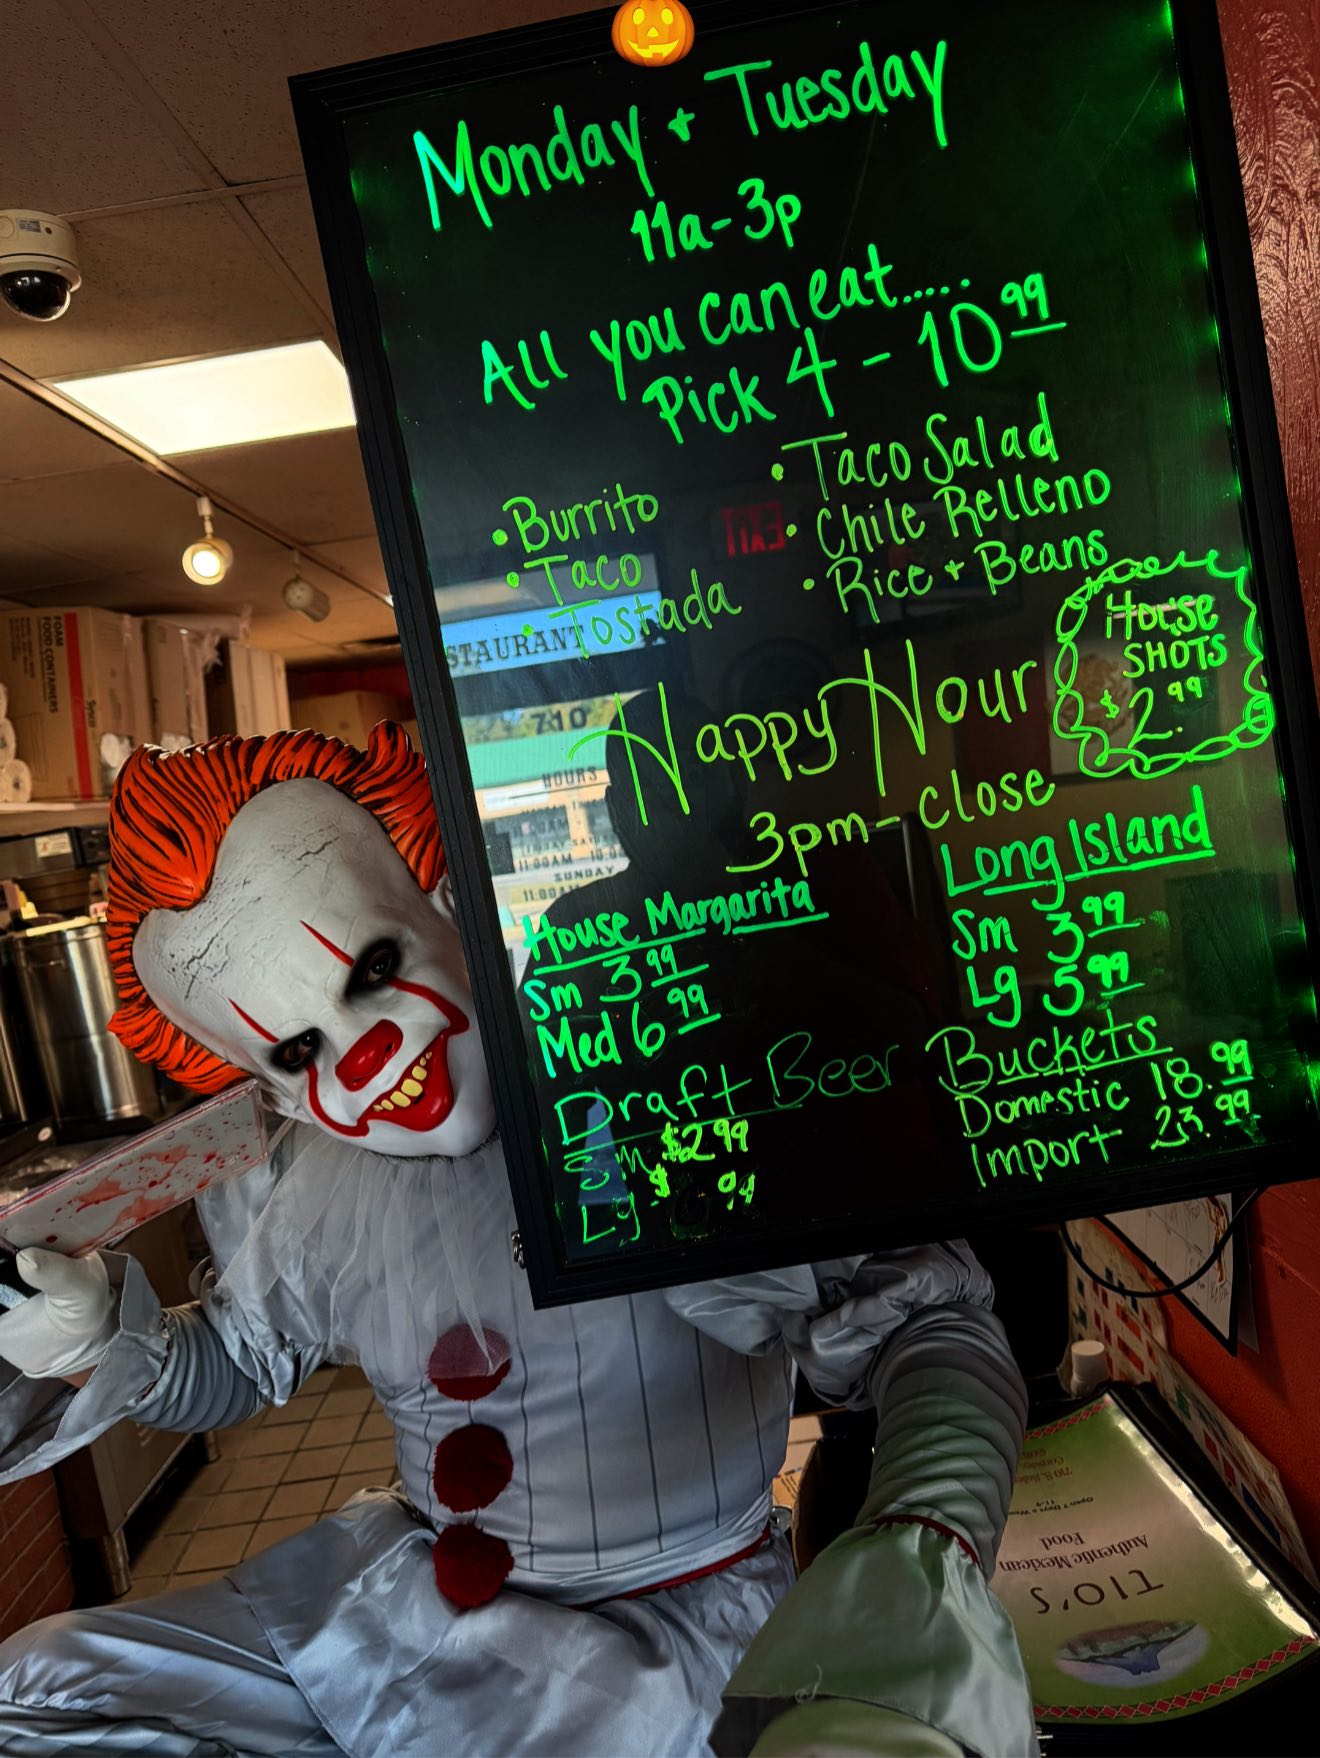 Monday + Tuesday
11a-3p
All you can eat.....
Pick 4 - 10 99
• Burrito
• Taco
• Tostada
• Taco Salad
• Chile Relleno
• Rice + Beans
House
SHOTS
$2.99
Happy Hour
3pm-close
House Margarita
Sm 3 99
Med 6 99
Long Island
Sm 3 99
Lg 5 99
Draft Beer
Sm $2 99
Lg - $ 99
Buckets
Domestic 18.99
Import 23.99
EXIT
STAURANT
710
HOURS
SUNDAY
11:00AM
FOAM
FOOD CONTAINERS
Sysco
TIO'S
Authentic Mexican
Food
Open 7 Days a Week
11-9
710 S.
Conway,